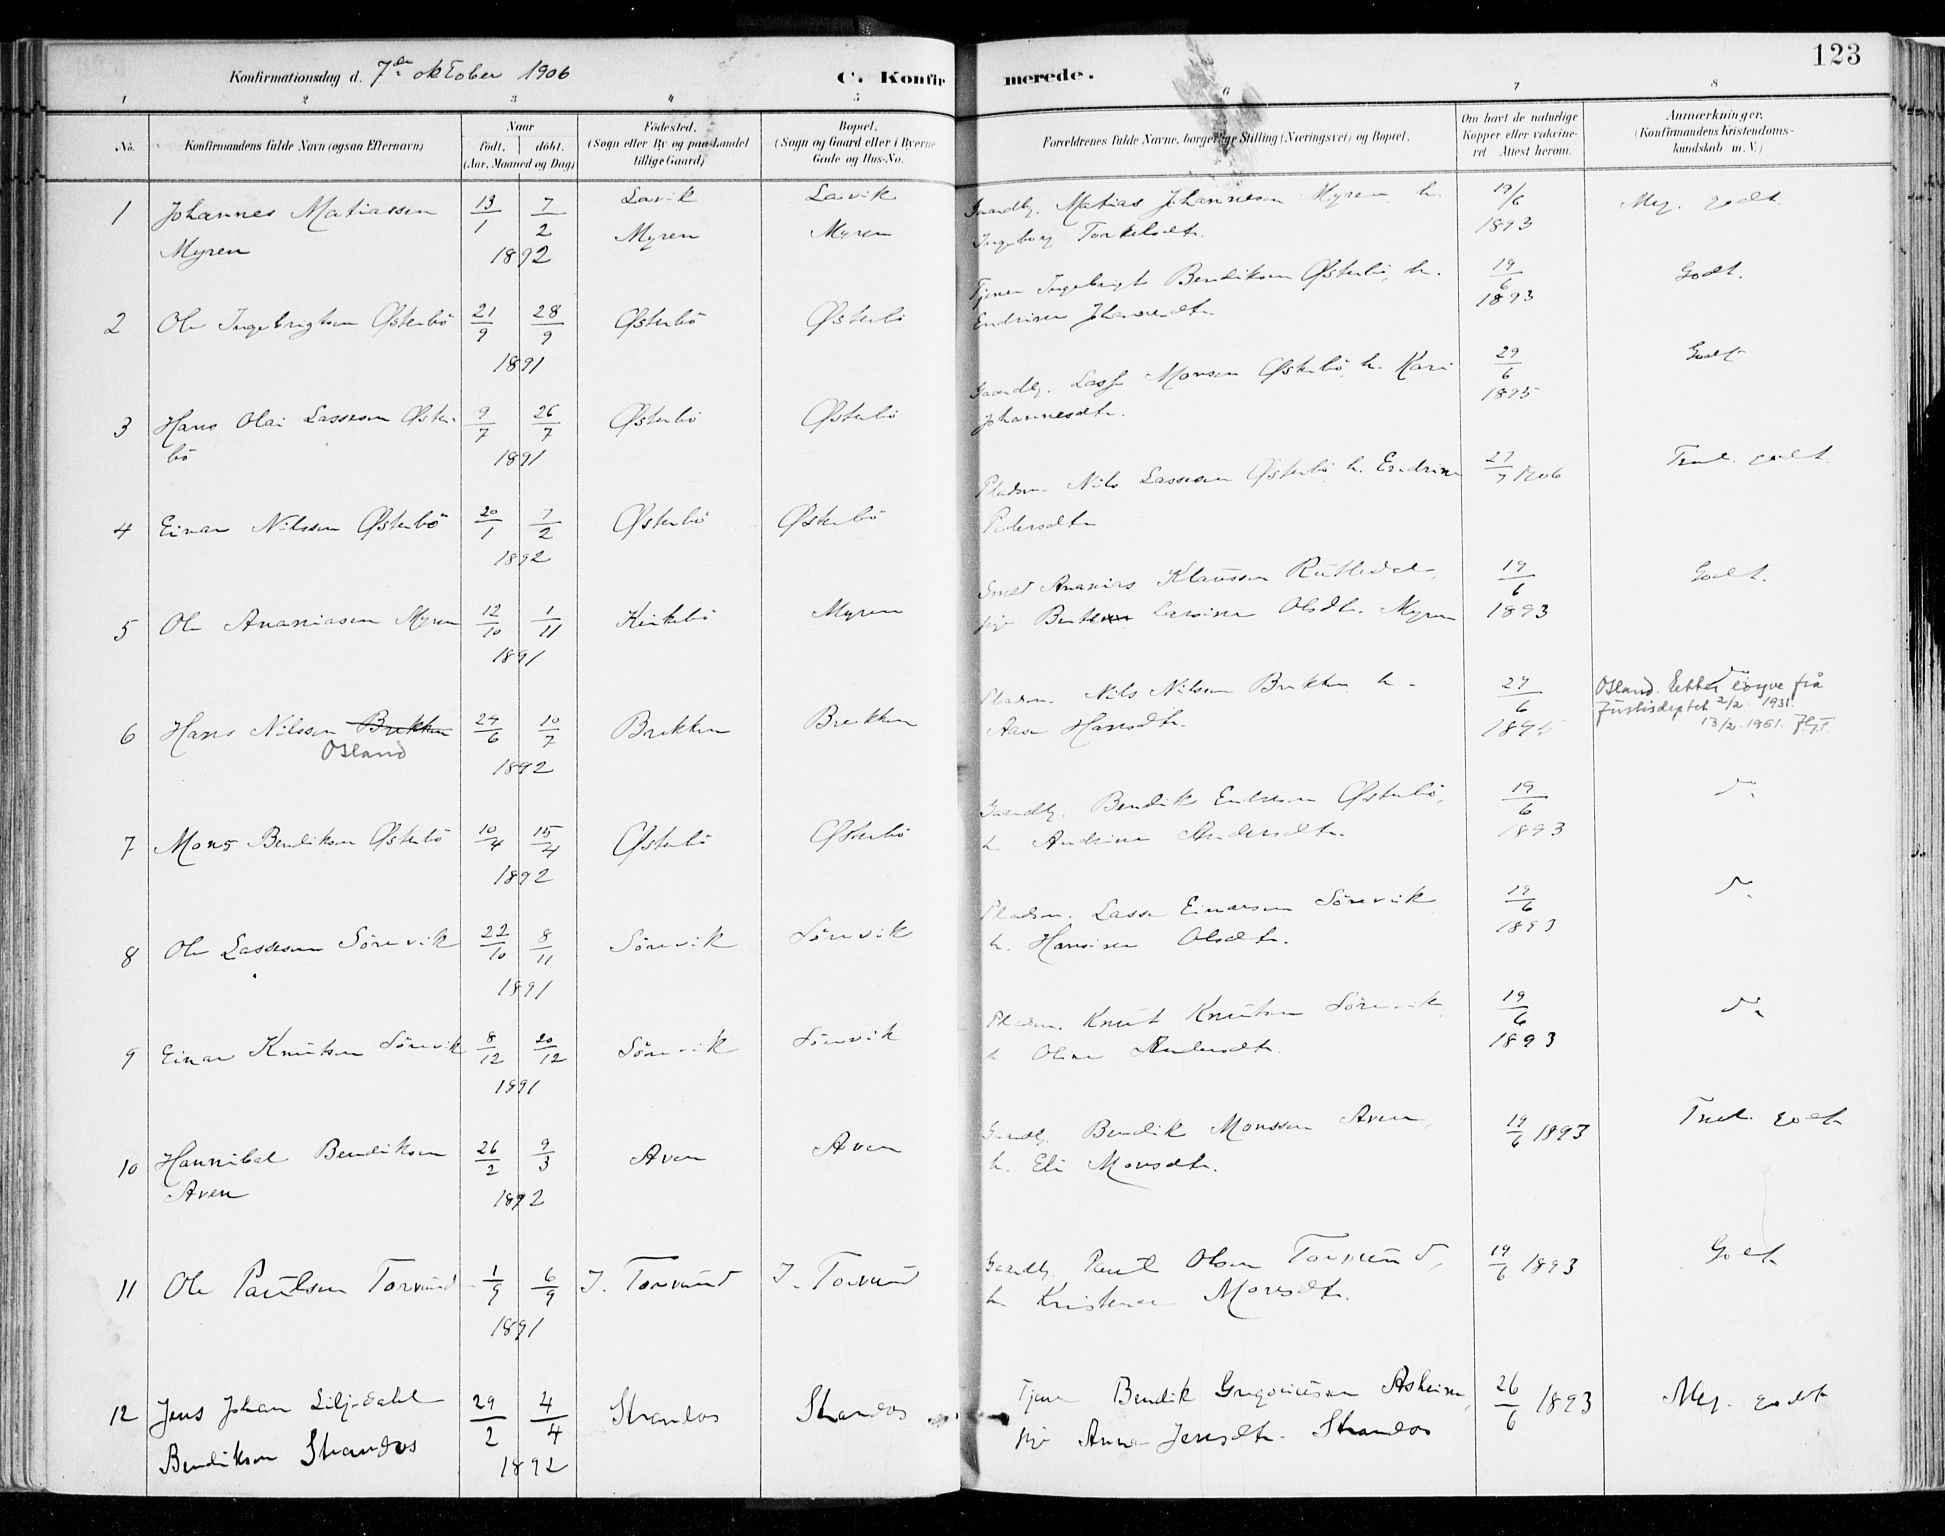 123
Konfirmationsdag d. 7de oktober 1906 C. Konfirmerede.
1 2 3 4 5 6 7 8
No. Konfirmandens fulde Navn (ogsaa Efternavn) Naar født. døbt. (Aar, Maaned og Dag) Fødested. (Sogn eller By og paa Landet tillige Gaard) Bopæl. (Sogn og Gaard eller i Byerne Gade og Hus-No. Forældrenes fulde Navne, borgerlige Stilling (Næringsvei) og Bopæl. Om havt de naturlige Kopper eller vakcineret Attest herom. Anmærkninger. (Konfirmandens Kristendomskundskab m. V.)
1 Johannes Matiassen 13/1 7/2 Lavik Lavik Gaardbr. Matias Johannesen Myren, h. 19/6 Meg. godt.
Myren 1892 Myren Myren Ingeborg Torkelsdtr. 1893
2 Ole Ingebrigtsen Østerbö 21/9 28/9 Østerbö Østerbö Tjener Ingebrigt Bendiksen Østerbö, h. 19/6 Godt.
1891 Endrine Johannesdtr. 1893
3 Hans Olai Lassesen Øster- 9/7 26/7 Østerbö Østerbö Gaardbr. Lasse Monsen Østerbö, h. Kari 29/6 Godt
bö 1891 Johannesdtr. 1895
4 Einar Nilssen Østerbö 20/1 7/2 Østerbö Østerbö Pladsm. Nils Lassesen Østerbö h. Endrine 27/7 1906 Tem. godt.
1892 Pedersdtr
5 Ole Ananiasen Myren 12/10 1/11 Kirkebö Myren Smed Ananias Klaussen Rutledal, 19/6 Godt.
1891 Larsine Olsdtr. Myren 1893
6 Hans Nilssen Brekken 24/6 10/7 Brekken Brekken Pladsm. Nils Nilssen Brekken h. 27/6 Osland. Etter löyve frå
Osland 1892 Aase Hansdtr. Justisdeptet 2/2 1931.
13/2 1951.
7 Mons Bendiksen Østerbö 10/4 15/4 Østerbö Østerbö Gaardbr. Bendik Østerbö, 19/6
1892 h. Andrine Andersdtr. 1893
8 Ole Lassesen Sörevik 22/10 8/11 Sörevik Sörevik Pladsm. Lasse Einarsen Sörevik 19/6
1891 h. Hansine Olsdtr. 1893
9 Einar Knutsen Sörevik 8/12 20/12 Sörevik Sörevik Pladsm. Knut Knutsen Sörevik, 19/6
1891 h. Oline Andersdtr. 1893
10 Hannibal Bendiksen 26/2 9/3 Aven Aven Gaardbr. Bendik Monssen Aven, 19/6 1893 godt
Aven 1892 h. Eli Monsdtr.
11 Ole Paulsen Torvund 1/9 6/9 I. Torvund I. Torvund Gaardbr. Paul Olsen Torvund, 19/6 1893 Godt
1891 h. Monsdtr.
12 Jens Johan Liljedahl 29/2 4/4 Strandos Strandos Tjener Bendik Gregoriussen 26/6 1893 Meg. godt
Bendiksen Strandos 1892 Anna Jensdtr. Strandos